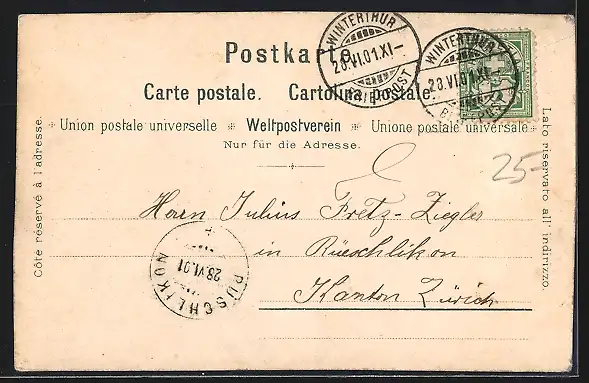 Postkarte.
WINTERTHUR
28.VI.01.XI-
BRIEFPOST
WINTERTHUR
28.VI.01.XI-
Carte postale. Cartolina postale.
Union postale universelle * Weltpostverein * Unione postale universale
Nur für die Adresse.
Côte réservé à l'adresse.
Lato riservato all' indirizzo.
25-
Herrn Julius Fretz-Ziegler
in Rüeschlikon
Kanton Zürich
RÜSCHLIKON
28.VI.01